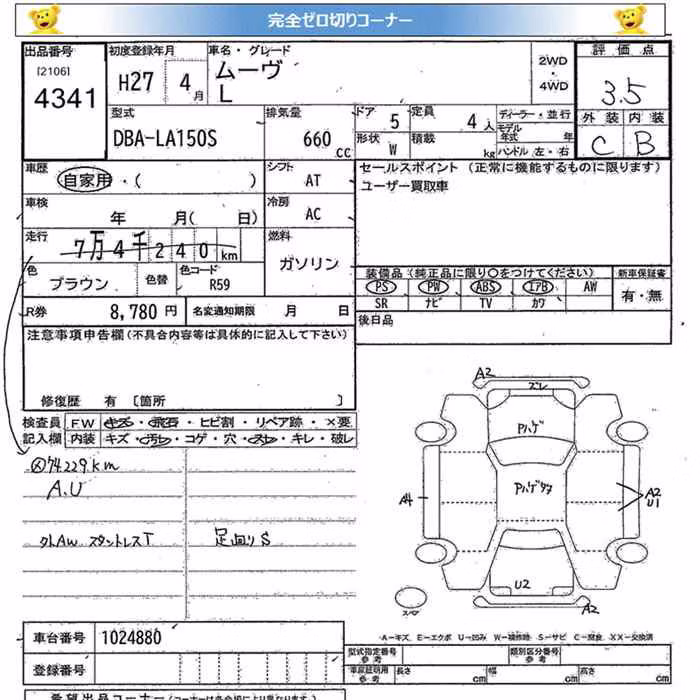 完全ゼロ切りコーナー
出品番号 初度登録年月 車名・グレード 評価点
[2106] 4341 H27 4月 ムーヴ L 2WD・4WD 3.5
外装 内装
C B
型式 排気量 ドア 定員 ディーラー・並行
DBA-LA150S 660 CC 5 4人 モデル年式 年
形状 W 積載 kg ハンドル 左・右
車歴 シフト セールスポイント (正常に機能するものに限ります)
自家用・( ) AT ユーザー買取車
車検 冷房
年 月( 日) AC
走行 燃料
7万4千240km ガソリン
色 色替 色コード 装備品(純正品に限り○をつけてください) 新車保証書
ブラウン R59 PS PW ABS エアB AW 有・無
SR ナビ TV カワ
R券 8,780円 名変通知期限 月 日 後日品
注意事項申告欄(不具合内容等は具体的に記入して下さい)
修復歴 有 [箇所 ]
検査員 FW キズ・飛石・ヒビ割・リペア跡・×要
記入欄 内装 キズ・汚レ・コゲ・穴・スレ・キレ・破レ
74229km
A.U
外AW スタントレスT 足回りS
A2
ズレ
Pハゲ
Pハゲタワ
A4 A2
U1
U2
スペア A2
A-キズ、E-エクボ U-凹み W-補修跡 S-サビ C-腐食、XX-交換済
車台番号 1024880
型式指定番号 参考 類別区分番号 参考
登録番号 車庫証明用 参考 長さ cm 幅 cm 高さ cm
希望出品コーナー